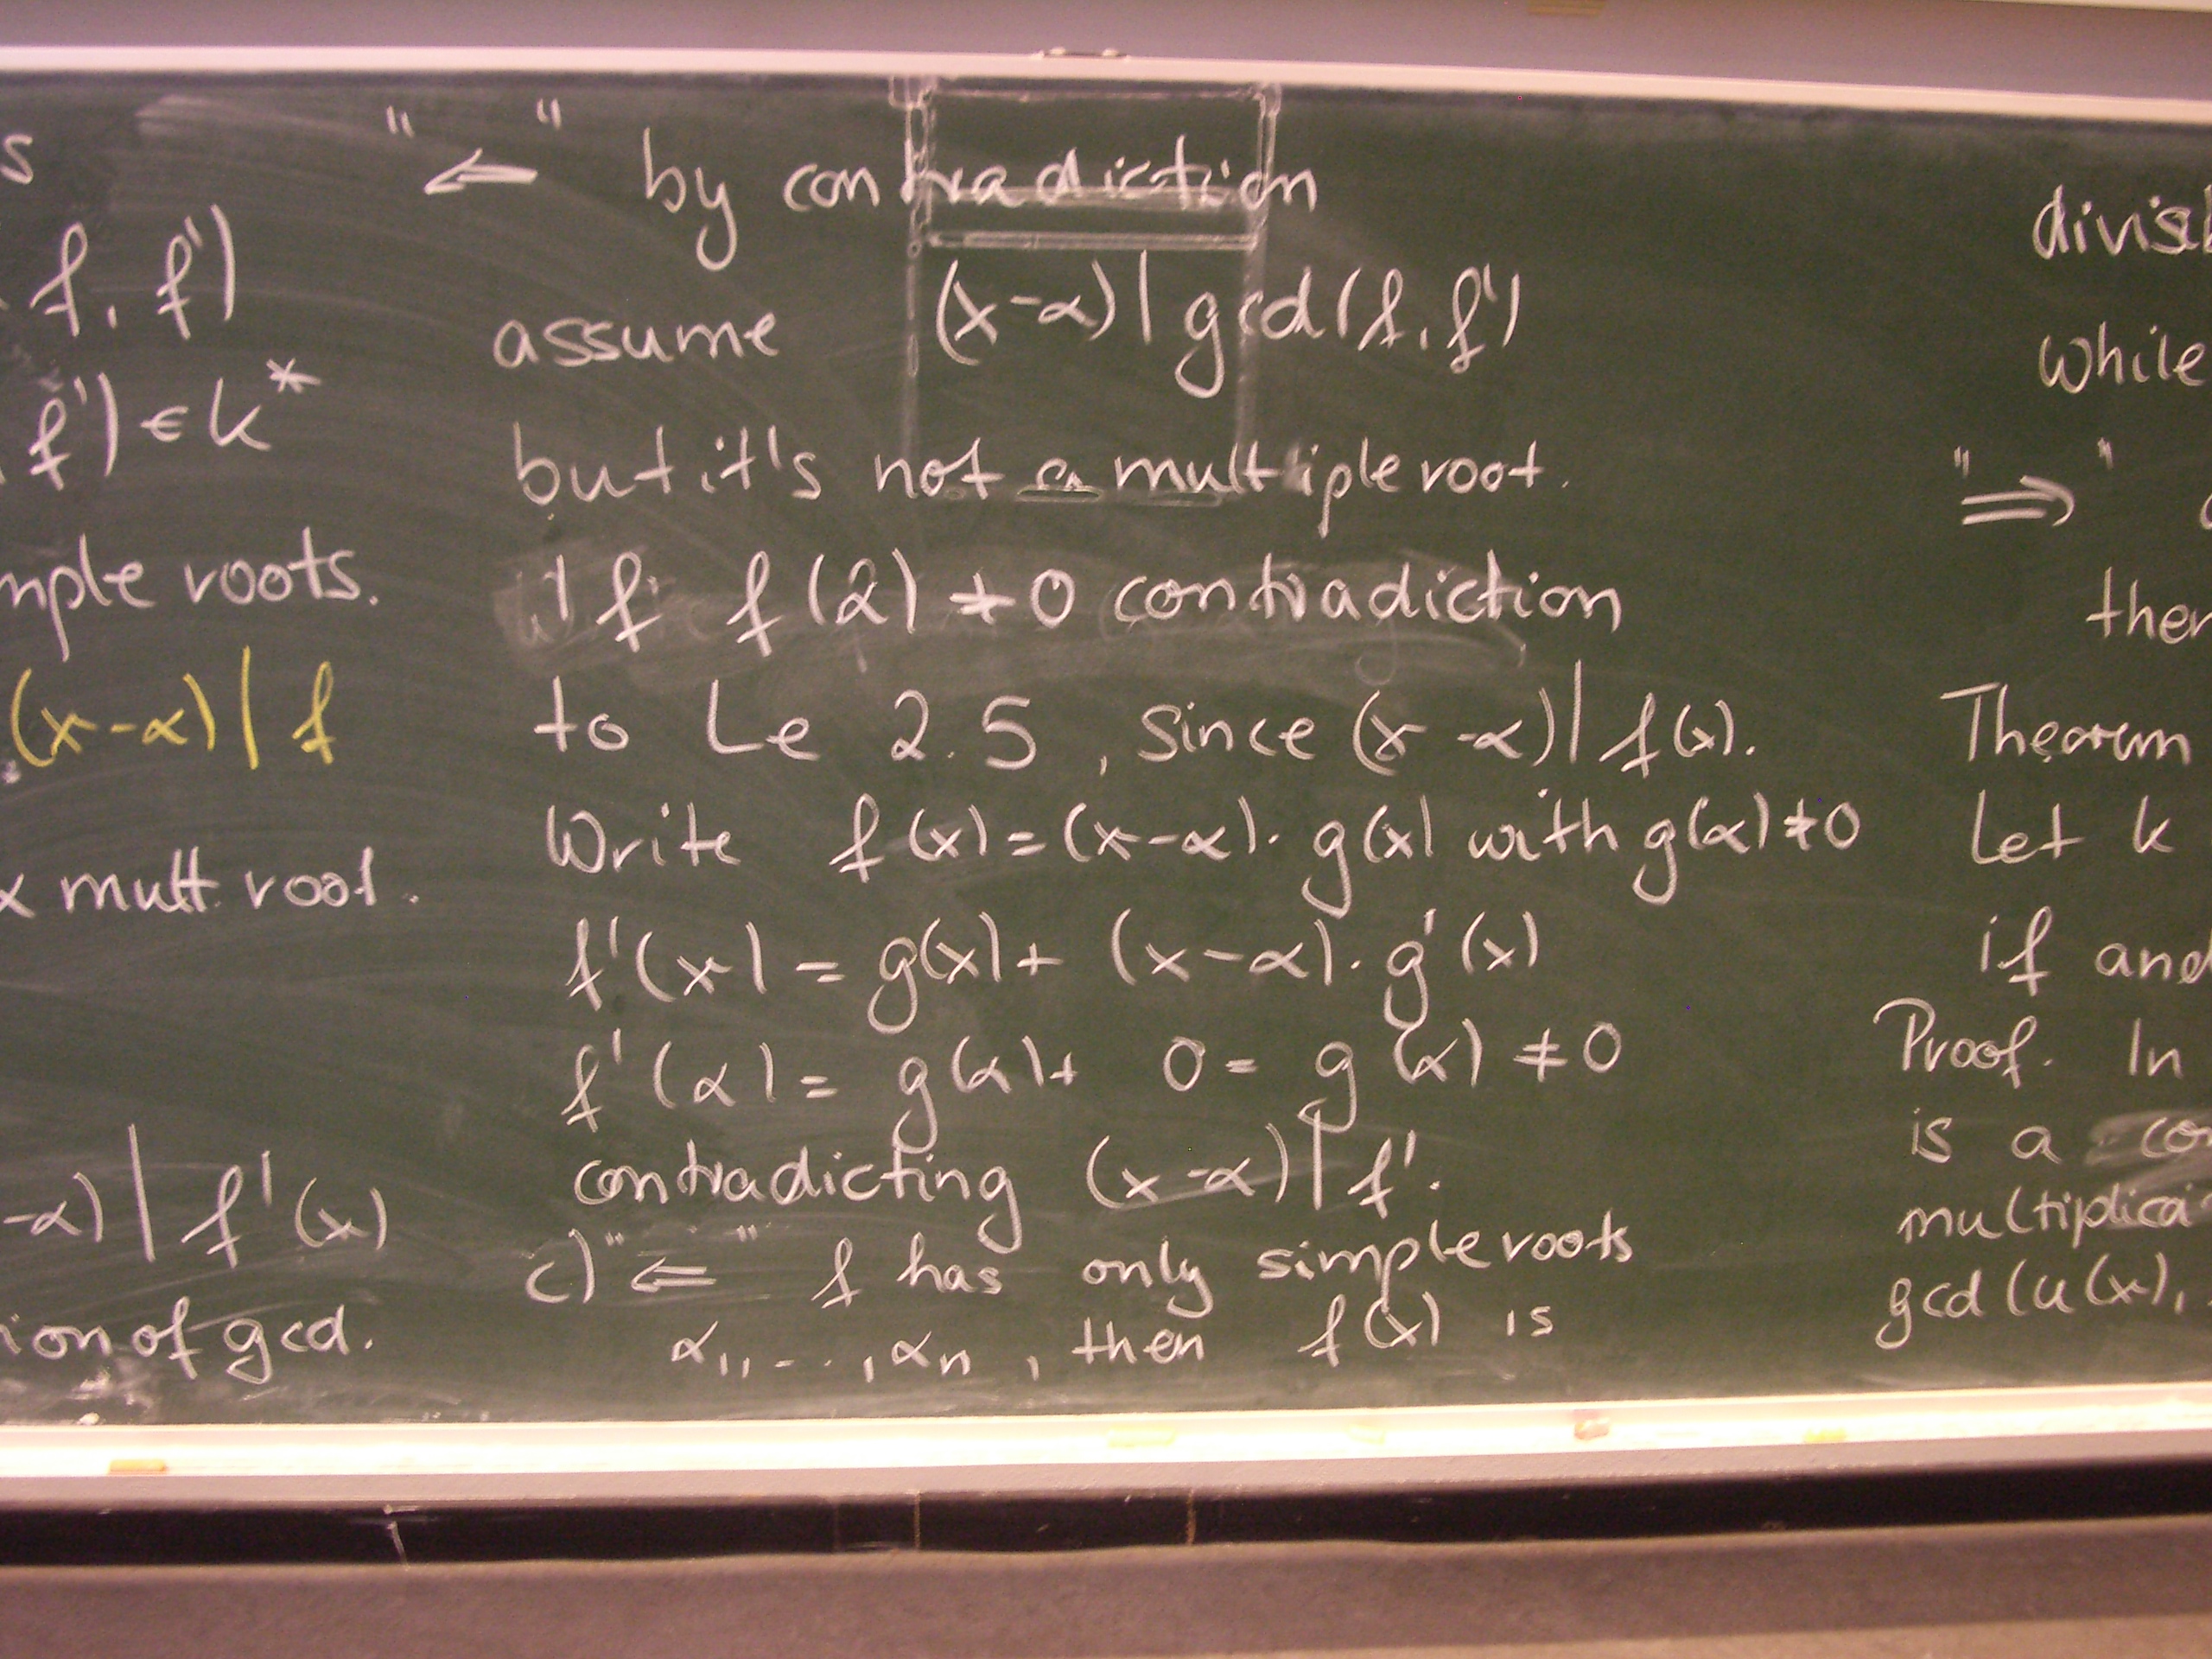 s
f, f')
f') ∈ k*
mple roots.
(x-α) | f
α mult. root.
-α) | f'(x)
ion of gcd.
"⇐" by contradiction
assume (x-α) | gcd(f, f')
but it's not a multiple root.
If f(α) ≠ 0 contradiction
to Le 2.5, since (x-α) | f(x).
Write f(x) = (x-α)· g(x) with g(α) ≠ 0
f'(x) = g(x) + (x-α)· g'(x)
f'(α) = g(α) + 0 = g(α) ≠ 0
contradicting (x-α) | f'.
c) "⇐" f has only simple roots
α1, ..., αn, then f(x) is
divisi
While
"⇒"
then
Theorem
Let k
if and
Proof. In
is a co
multiplica
gcd(u(x),